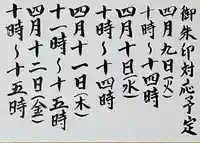 御朱印対応予定
四月九日(火)
十時〜十四時
四月十日(水)
十時〜十四時
四月十一日(木)
十一時〜十五時
四月十二日(金)
十時〜十五時